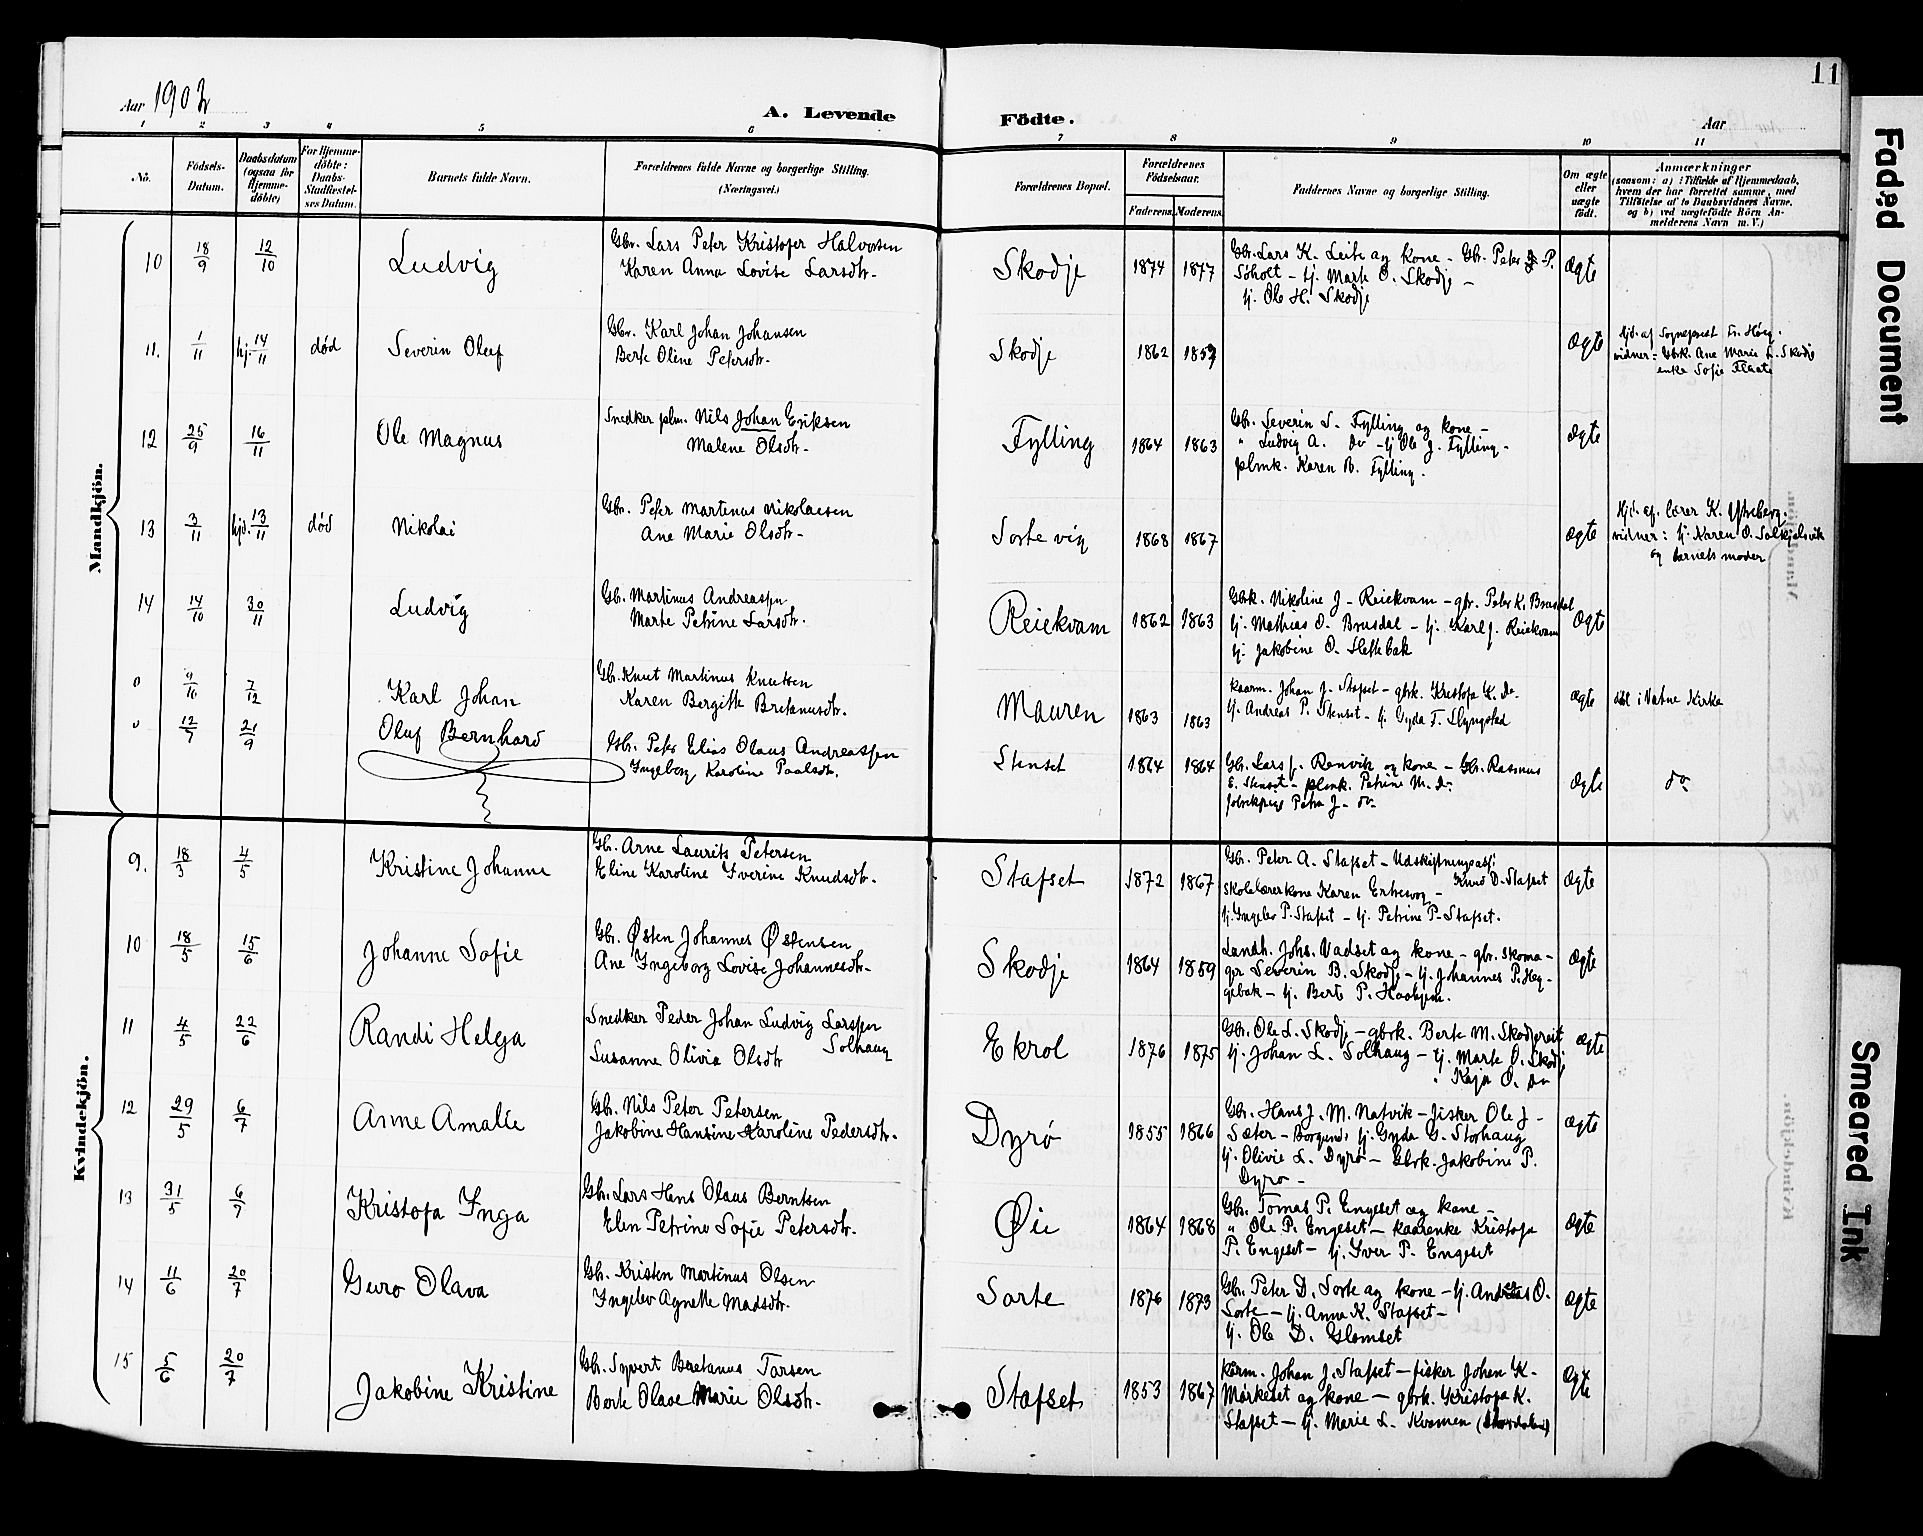 11
Aar 1902
A. Levende Födte.
Aar
1 2 3 4 5 6 7 8 9 10 11
No.
Födsels-Datum.
Daabsdatum (ogsaa for Hjemme-döbte)
For Hjemme-döbte: Daabs-Stadfæstel-ses Datum.
Barnets fulde Navn.
Forældrenes fulde Navne og borgerlige Stilling.
(Næringsvei.)
Forældrenes Bopæl.
Forældrenes Födselsaar.
Faderens. Moderens.
Faddernes Navne og borgerlige Stilling.
Om ægte eller uægte født.
Anmærkninger
(saasom: a) i Tilfælde af Hjemmedaab, hvem der har forrettet samme, med Tilföielse af to Daabsvidners Navne, og b) ved uægtefödte Börn An-melderens Navn m.V.)
Mandkjön.
10 18/9 12/10 Ludvig
Gbr. Lars Peter Kristofer Halvorsen
Karen Anna Lovise Larsdtr.
Skodje 1874 1877
Gbr. Lars K. Leite og kone - Gbr. Peter P.
Søholt - tj. Marte O. Skodje -
tj. Ole H. Skodje
Ægte
11. 1/11 hj. 14/11 død Severin Oluf
Gbr. Karl Johan Johansen
Berte Oline Petersdtr.
Skodje 1862
Ægte
Hjd. af Sogneprest
vidner: Gbrk. Ane Marie L. Skodje
enke Sofie Flaate
12 25/9 16/11 Ole Magnus
Snedker plm. Nils Johan Eriksen
Malene Olsdtr.
Fylling 1864 1863
Gbr. Severin S. Fylling og kone -
" Ludvig A. do - tj Ole J. Fylling -
plmk. Karen B. Fylling.
Ægte
13 3/11 hjd. 13/11 død Nikolai
Gbr. Peter Martinus Nikolaisen
Ane Marie Olsdtr.
Sortevig 1868 1867
Ægte
Hjd. af. lærer K. Ytreberg.
vidner: tj. Karen O. Solkjelsvik
og barnets moder
14 14/10 30/11 Ludvig
Gb. Martinus Andreassen
Marte Petrine Larsdtr.
Reiekvam 1862 1863
Gbrk. Nikoline J - Reiekvam - gbr. Peter K. Brusdal
tj. Mathias O. Brusdal - tj. Karl J. Reiekvam
tj. Jakobine O. Slettebak
Ægte
0 9/10 7/12 Karl Johan
Gb. Knut Martinus Knutsen
Karen Bergitte Bretanusdtr.
Mauren 1863 1863
kaarm. Johan J. Stafset - gbrk. Kristofa K. Do.
tj. Andreas P. Stenset - tj. Gyda F. Slyngstad
Ægte
døbt i Vatne Kirke
0 12/7 21/9 Oluf Bernhard
Gbr. Peter Elias Olaus Andreassen
Ingeborg Karoline Paalsdtr.
Stenset 1864 1864
Gbr. Lars J. Renvik og kone - Gbr. Rasmus
E. Stenset - plmk. Petrine M. do.
fabrikpige Petra J - do
Ægte
do
Kvindekjön.
9. 18/3 4/5 Kristine Johanne
Gb. Arne Laurits Petersen
Eline Karoline Iverine Knudsdtr.
Stafset 1872 1867
Gbr. Peter A. Stafset - Udskiftningsass.
Knud D. Stafset
skolelærerkone Karen -
tj. Ingeber P. Stafset - tj. Petrine P. Stafset.
Ægte
10 18/5 15/6 Johanne Sofie
Gb. Østen Johannes Østensen
Ane Ingeborg Lovise Johannesdtr.
Skodje 1864 1859
Landh. Johs. Vadset og kone - gbr. skoma-
ger Severin B. Skodje - tj. Johannes P. Heg-
gebak - tj. Berte P.
Ægte
11 4/5 22/6 Randi Helga
Snedker Peder Johan Ludvig Larsen
Solhaug
Susanne Olivia Olsdtr
Ekrol 1876 1875
Gbr. Ole L. Skodje - gbrk. Berte M. Skodjereit
tj. Johan L. Solhaug - tj. Marte O. Skodje
" Kaja O. do
Ægte
12 29/5 6/7 Anne Amalie
Gb. Nils Peter Petersen
Jakobine Hansine Karoline Pedersdtr.
Dyrø 1855 1866
Gb. Hans J. M. Natvik - fisker Ole J -
Sæter - Borgund, tj. Gyda G. Storhaug
tj. Olivie L. Dyrø - Gbrk. Jakobine P.
Dyrø -
Ægte
13 31/5 6/7 Kristofa Inga
Gb. Lars Hans Olaus Berntsen
Elen Petrine Sofie Petersdtr.
Øie 1864 1868
Gb. Tomas P. Engeset og kone -
" Ole P. Engeset - kaarenke Kristofa
P. Engeset - tj. Iver P. Engeset
Ægte
14 11/6 20/7 Guro Olava
Gb. Kristen Martinus Olsen
Ingeber Agnette Madsdtr.
Sorte 1876 1873
Gbr. Peter D. Sorte og kone - tj. Andreas O.
Sorte - tj. Anna K. Stafset -
tj. Ole D. Glomset
Ægte
15 5/6 20/7 Jakobine Kristine
Gb. Syvert Bretanus Tarsen
Berte Olave Marie Olsdtr.
Stafset 1853 1867
karm. Johan J. Stafset - fisker Johan K.
Mørkeset og kone - gbrk. Kristofa K.
Stafset - tj. Marie L. Kvamen
Ægte
Faded Document
Smeared Ink